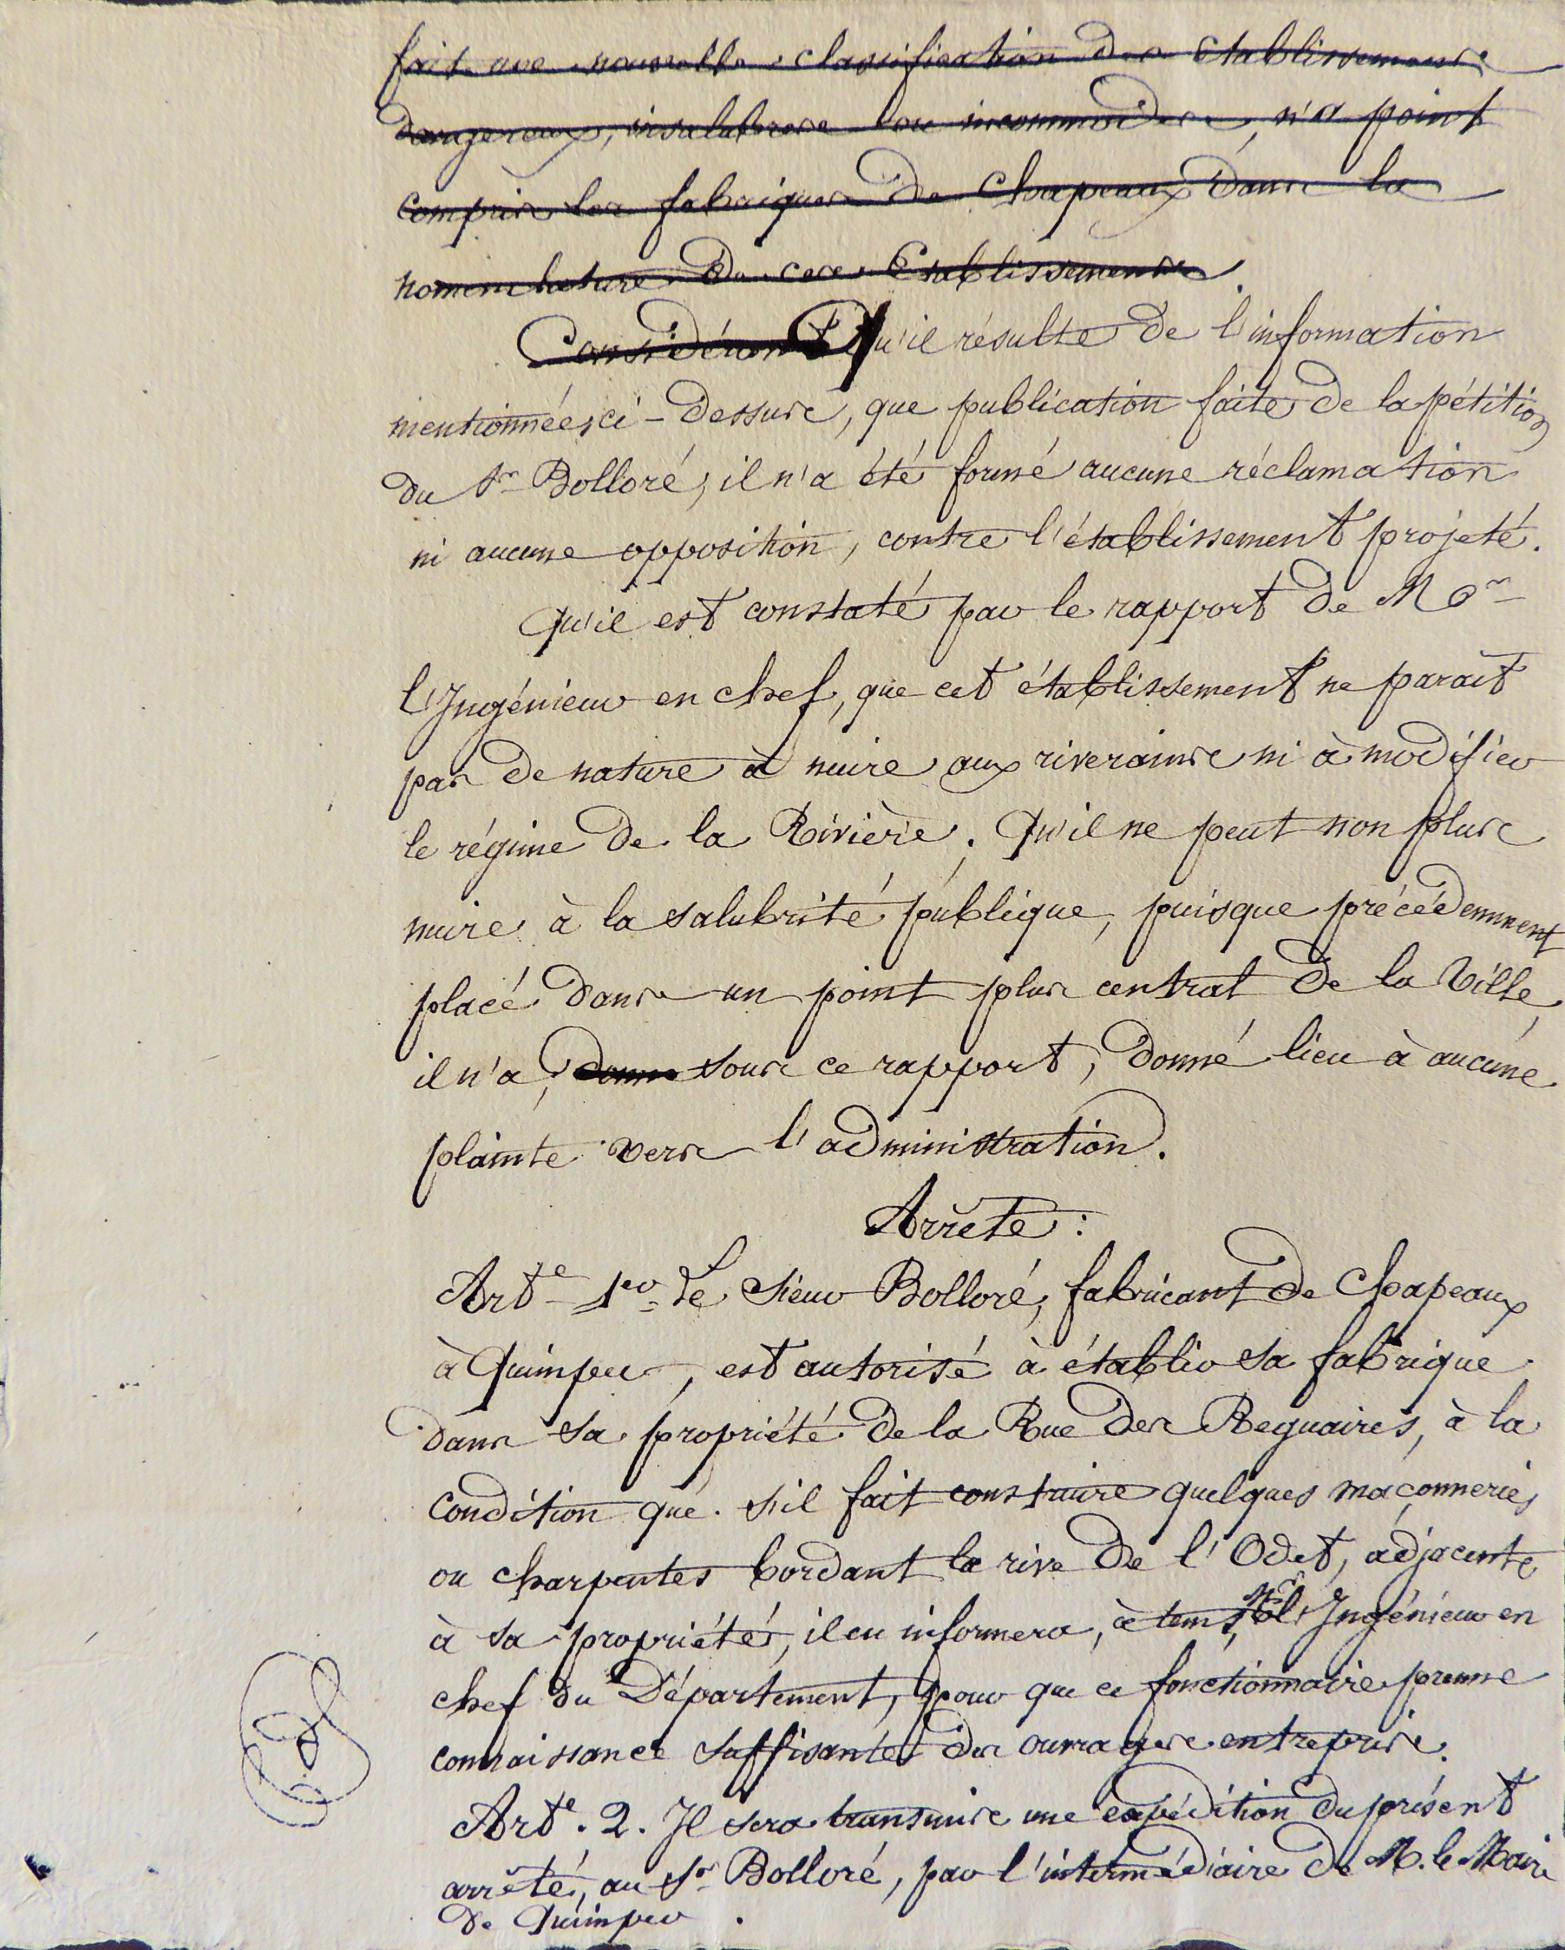 fait une nouvelle classification des Etablissements
dangereux, insalubres ou incommodes, n'a point
compris les fabriques de Chapeaux dans la
nomenclature de ces Etablissements.
Considérant Qu'il résulte de l'information
mentionnée ci-dessus, que publication faite de la pétition
du Sr Bolloré, il n'a été formé aucune réclamation
ni aucune opposition, contre l'établissement projeté.
Qu'il est constaté par le rapport de Mr
l'Ingénieur en chef, que cet établissement ne parait
pas de nature à nuire aux riverains ni à modifier
le régime de la Rivière. Qu'il ne peut non plus
nuire à la salubrité publique, puisque précédemment
placé dans un point plus central de la Ville,
il n'a, donné sous ce rapport, donné lieu à aucune
plainte vers l'administration.
Arrête :
Arte 1er Le Sieur Bolloré, fabricant de Chapeaux
à Quimper, est autorisé à établir sa fabrique
dans sa propriété de la Rue des Reguaires, à la
condition que s'il fait construire quelques maçonneries
ou charpentes bordant la rive de l'Odet, adjacente
à sa propriété, il en informera, à tems, Mr l'Ingénieur en
chef du Département, pour que ce fonctionnaire prenne
connaissance suffisante des ouvrages entrepris.
Arte. 2. Il sera transmis une expédition du présent
arrêté, au Sr Bolloré, par l'intermédiaire de M. le Maire
de Quimper.